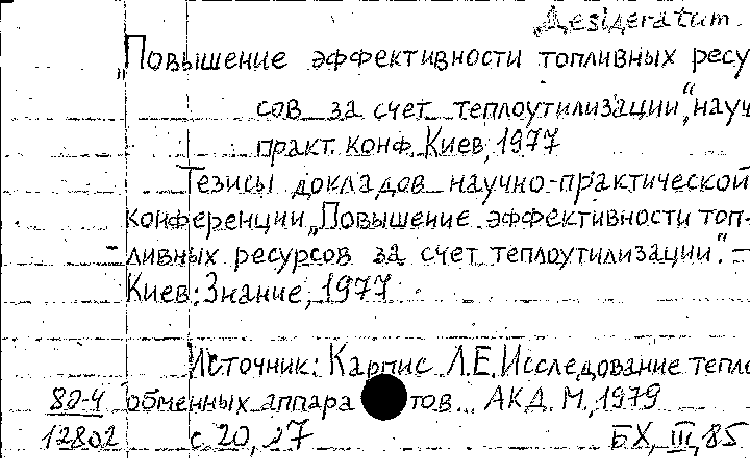 „Desideratum
„Повышение эффективности топливных ресур
сов за счет теплоутилизации“, науч
практ. конф. Киев, 1977
Тезисы докладов научно-практической
конференции „Повышение эффективности топ-
ливных ресурсов за счет теплоутилизации“. —
Киев: Знание, 1977
Источник: Карпис Л.Е. Исследование тепло
80-4 обменных аппара тов... АКД. М., 1979
12802 с. 20, 27 БХ, III, 85